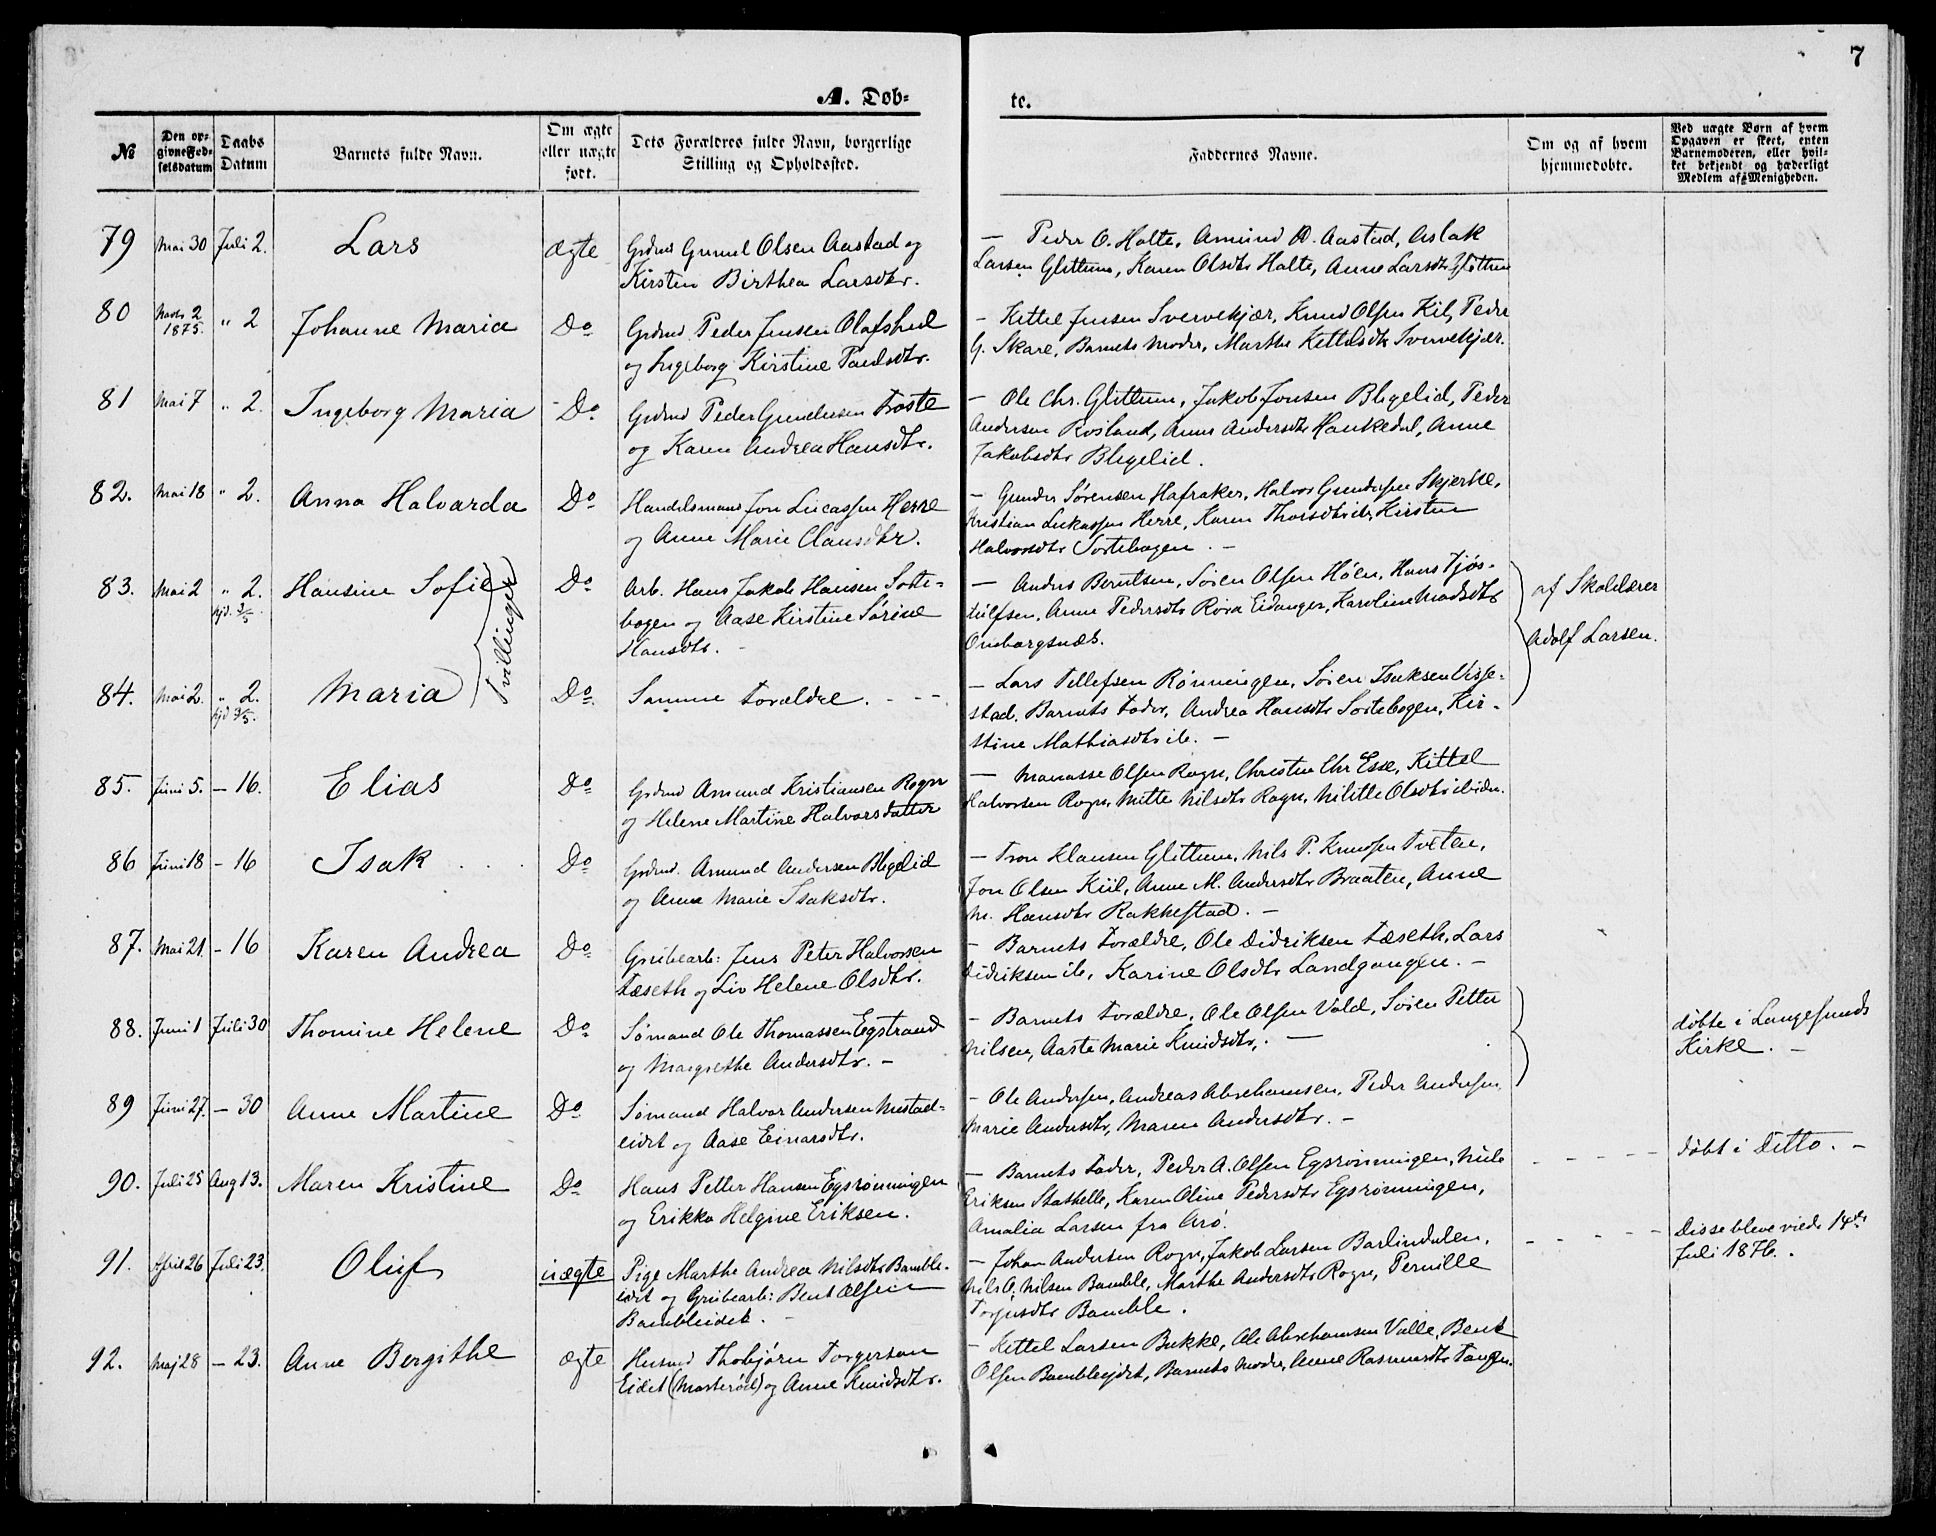 7
A. Döb=
te.
№
Den op=
givne Fød=
selsdatum
Daabs
Datum
Barnets fulde Navn.
Om ægte
eller uægte
født.
Dets Forældres fulde Navn, borgerlige
Stilling og Opholdssted.
Faddernes Navne.
Om og af hvem
hjemmedøbte.
Ved uægte Børn af hvem
Opgaven er skeet, enten
Barnemoderen, eller hvil=
ket bekjendt og hæderligt
Medlem af Menigheden.
79 Mai 30 Juli 2. Lars ægte
Grdmd Gunnul Olsen Aastad og
Kirsten Birthea Larsdtr.
— Peder O. Halte, Amund A. Aastad, Aslak
Larsen Glittum, Karen Olsdtr Halte, Anne Larsdtr Glittum
80 Novb 2 1875. " 2 Johanne Maria Do
Grdmd Peder Jensen Olafshul
og Ingeborg Kirstine Paulsdtr.
— Kittel Jensen Svervekjær, Knud Olsen Kil, Peder
G. Skare, Barnets Moder, Marthe Kittilsdtr Svervekjær.
81 Mai 7 " 2. Ingeborg Maria Do
Grdmd Peder Gundersen Toste
og Karen Andrea Hansdtr.
— Ole Chr. Glittum, Jakob Jonsen Blegelid, Peder
Andersen Rosland, Anne Andersdtr Hankedal, Anne
Jakobsdtr Blegelid.
82. Mai 18 " 2. Anna Halvarda Do
Handelsmand Jon Lucassen Herre
og Anne Marie Clausdtr.
— Gunder Sørensen Hafraker, Halvor Gundersen Skjerke,
Kristian Lukassen Herre, Karen Thorsdtr ib, Kirsten
Halvorsdtr Sortebogen. —
83. Mai 2 " 2. hjd. 3/5. Hansine Sofie Do
Tvillinger
Arb. Hans Jakob Hansen Sorte=
bogen og Aase Kirstine Sørine
Hansdtr. —
— Anders Berntsen, Søren Olsen Høen, Hans Tjøs=
tulfsen, Anne Pedersdtr Røra Eidanger, Karoline Madsdtr
Ombargsnæs.
af Skolelærer
Adolf Larsen.
84. Mai 2. " 2. hjd 3/5. Maria Do
Samme Forældre. - -
— Lars Tellefsen Rønningen, Søren Isaksen Visse=
stad, Barnets Fader, Andrea Hansdtr Sortebogen, Kir=
stine Mathiasdtr ib. —
85. Juni 5. — 16. Elias Do
Grdmd Amund Kristiansen Rogn
og Helene Martine Halvorsdatter
— Manasse Olsen Rogn, Christen Chr Esse, Kittel
Halvorsen Rogn, Mitte Nilsdtr Rogn, Nilille Olsdtr ibidm.
86 Juni 18 — 16 Isak Do
Grdmd. Amund Andersen Blegelid
og Anne Marie Isaksdtr.
— Tron Klausen Glittum, Nils P. Knudsen Tveten,
Jon Olsen Kiil, Anne M. Andersdtr Braaten, Anne
M. Hansdtr Rakkestad. —
87. Mai 21. — 16 Karen Andrea Do
Grubearb: Jens Peter Halvorsen
Fæseth og Liv Helene Olsdtr.
— Barnets Forældre, Ole Didriksen Fæseth, Lars
Didriksen ib, Karine Olsdtr Landgangen. —
88. Juni 1 Juli 30 Thomine Helene Do
Sømand Ole Thomassen Egstrand
og Margrethe Andersdtr. —
— Barnets Forældre, Ole Olsen Vold, Søren Petter
Nilsen, Aaste Marie Knudsdtr. —
døbte i Langesunds
Kirke. —
89 Juni 27. — 30 Anne Martine Do
Sømand Halvor Andersen Mustad=
eidet og Aase Einarsdtr.
— Ole Andersen, Andreas Abrahamsen, Peder Andersen,
Marie Andersdtr, Maren Andersdtr. —
90. Juli 25 Aug 13. Maren Kristine Do
Hans Petter Hansen Egsrønningen
og Erikka Helgine Eriksen.
— Barnets Fader, Peder A. Olsen Egsrønningen, Nils
Eriksen Stathelle, Karen Oline Pedersdtr Egsrønningen,
Amalia Larsen fra Arø.
- - - - - døbt i Ditto. —
91. April 26 Juli 23. Oluf uægte
Pige Marthe Andrea Nilsdtr Bamble-
eidet og Grubearb: Bent Olsen
Bambleeidet. —
— Johan Andersen Rogn, Jakob Larsen Barlindalen,
Nils O. Nilsen Bamble, Marthe Andersdtr Rogn, Pernille
Torjusdtr Bamble.
- - - - - Disse bleve viede 14de
Juli 1876.
92. Maj 28 — 23. Anne Bergithe ægte
Husmd Thobjørn Torgersen
Eidet (Masterød) og Anne Knudsdtr.
— Kettel Larsen Bukke, Ole Abrahamsen Valle, Bent
Olsen Bambleejdet, Barnets Moder, Anne Rasmusdtr Tangen.